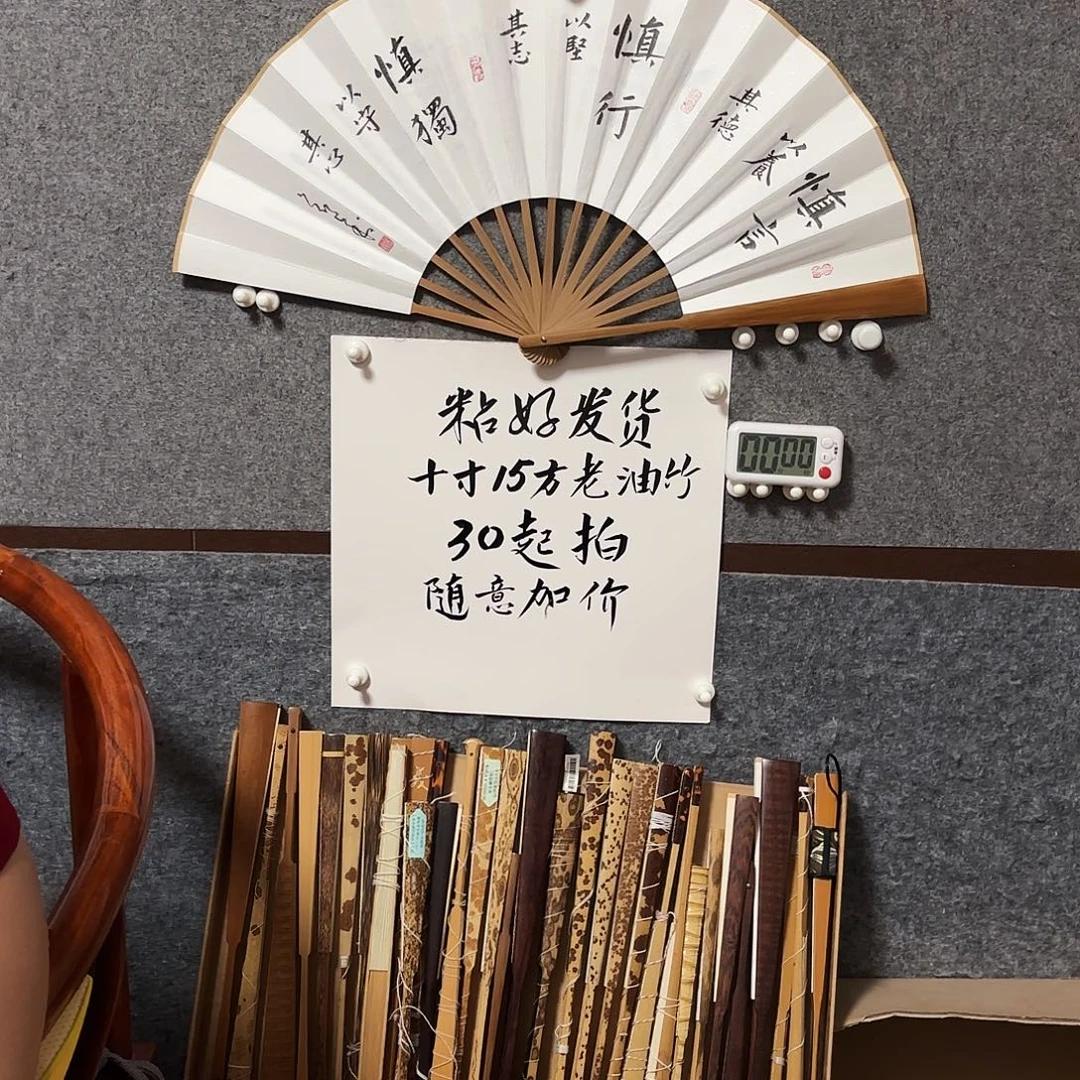 慎言
以養
其德
慎行
以堅
其志
慎獨
以守
其心
粘好发货
十寸15方老油竹
30起拍
随意加价
00:00